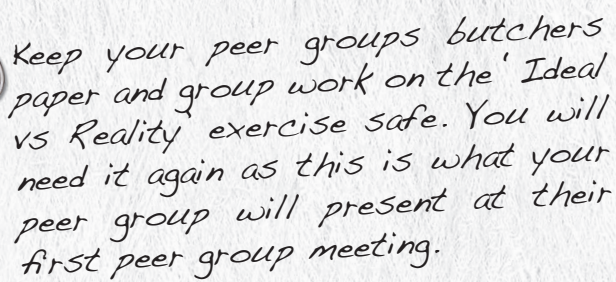 Keep your peer groups butchers
paper and group work on the 'Ideal
vs Reality' exercise safe. You will
need it again as this is what your
peer group will present at their
first peer group meeting.